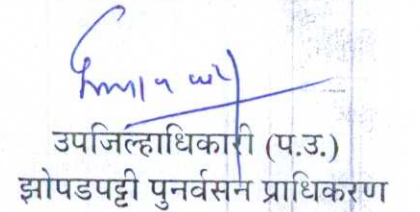 उपजिल्हाधिकारी (प.उ.)
झोपडपट्टी पुनर्वसन प्राधिकरण